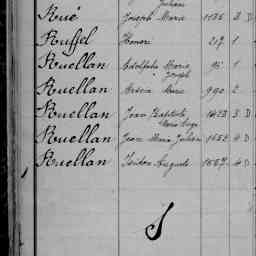 Julien
Rué Joseph Marie 1186 2 D
Ruffel Honoré 217 1
Ruellan Adolphe Marie 95 1
Joseph
Ruellan Marie 990 2
Ruellan Jean Baptiste 1423 3 D
Marie Ange
Ruellan Jean Marie Julien 1552 4 D
Ruellan Isidore Auguste 1557 4 D
S